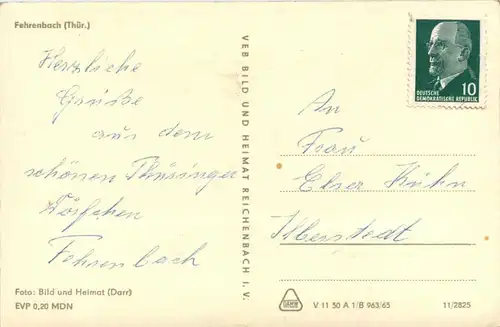 Fehrenbach (Thür.)
Herzliche
Grüße
aus dem
schönen Thüringer
Dörfchen
Fehrenbach
Foto: Bild und Heimat (Darr)
EVP 0,20 MDN
VEB BILD UND HEIMAT REICHENBACH I. V.
10
DEUTSCHE
DEMOKRATISCHE REPUBLIK
An
Frau
Elser Kühn
Ilberstedt
V 11 50 A 1/B 963/65
11/2825